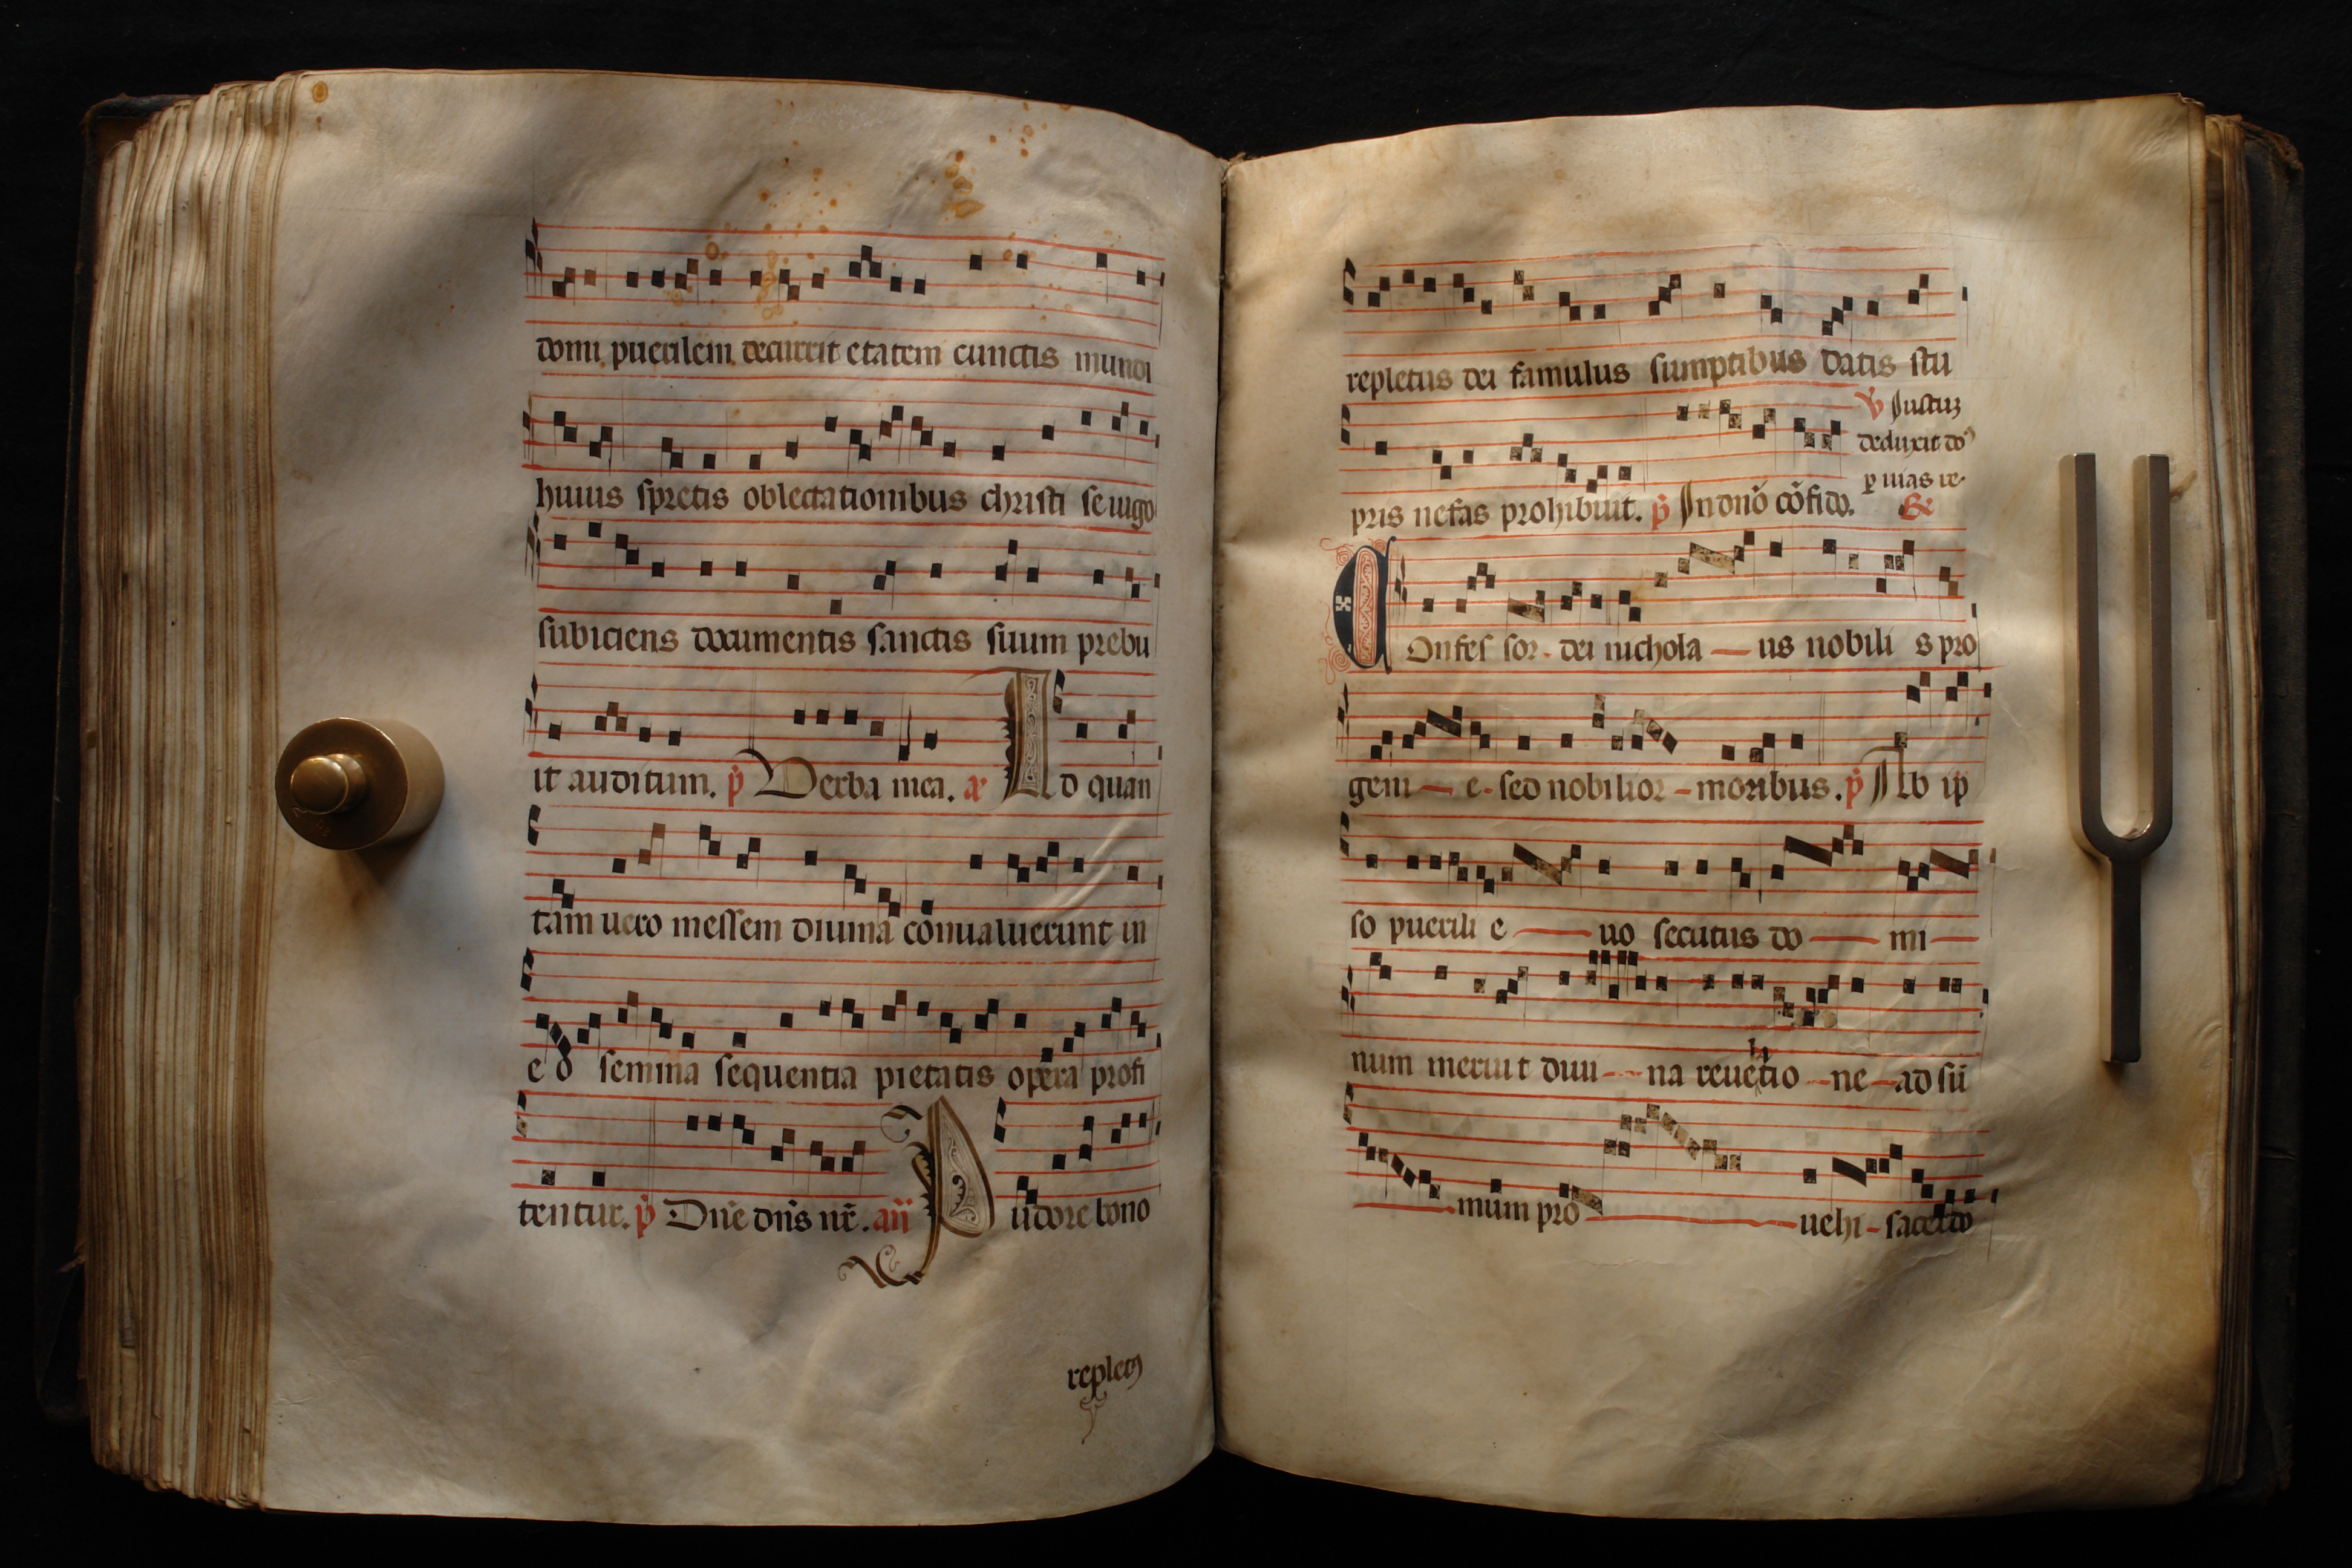 domi puerilem decurrit etatem cunctis mundi
huius spretis oblectationibus christi se iugo
subiciens documentis sanctis suum prebu
it auditum. p̄ Verba mea. a Ad quan
tam uero messem diuina conualuerunt in
eo semina sequentia pietatis opera profi
tentur. p̄ Dn̄e dn̄s nr̄. añ Pudore bono
repletꝯ
repletus dei famulus sumptibus datis stu
℣ Iustuꝫ
deduxit do
ꝑ uias re
pris nefas prohibuit. p̄ In dn̄o cōfido. ℟
Confessor dei nicholaus nobilis pro
genie sed nobilior moribus. p̄ Ab ip
so puerili euo secutus domi
num meruit diuina reuelatione ad sū
mum prouehi sacerdo